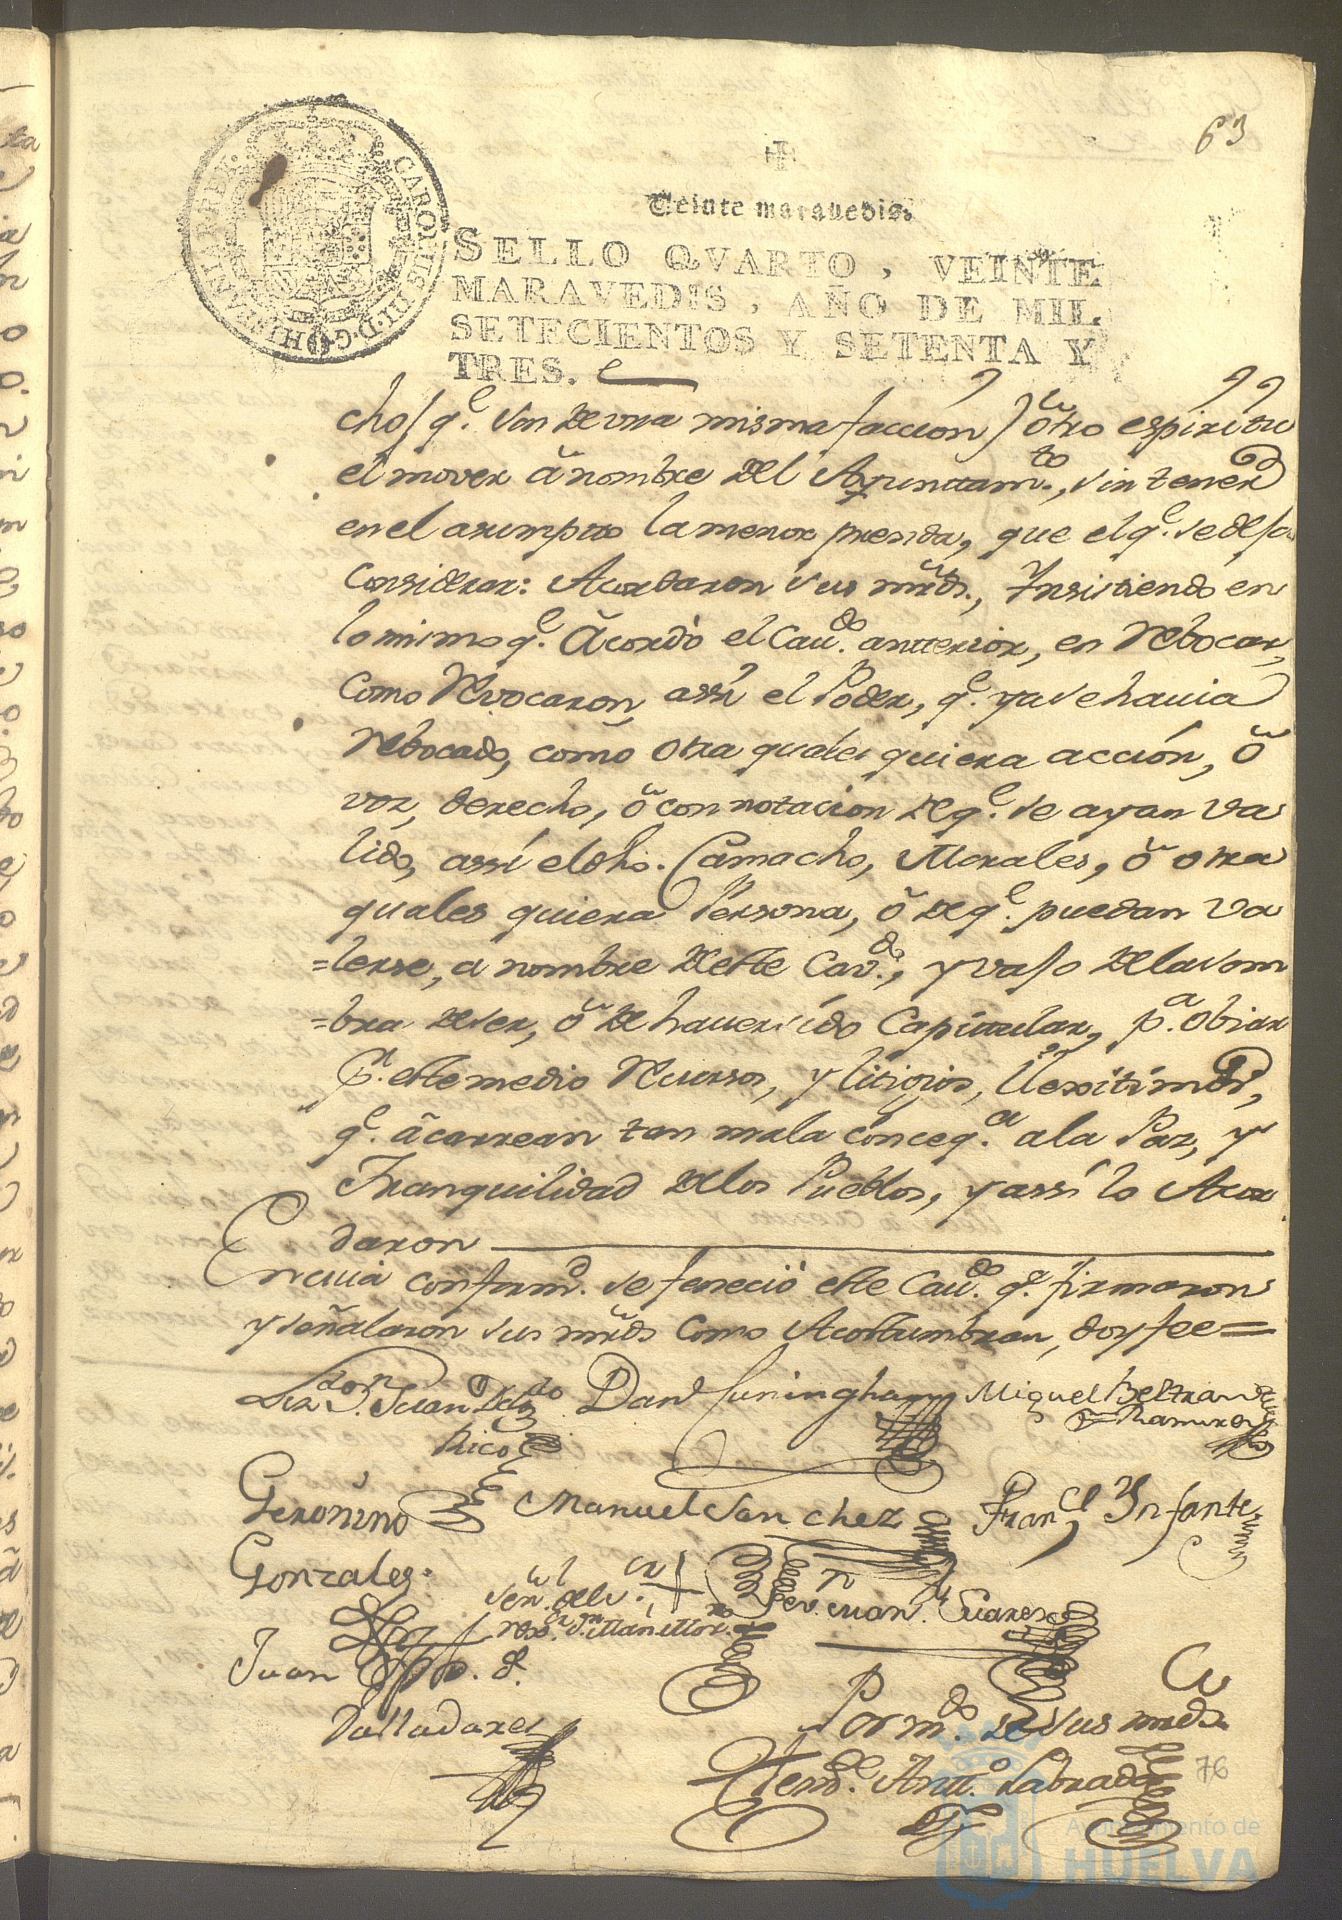 63
Veinte maravedis.
CAROLUS III. D. G. HISPANIAR. REX.
SELLO QVARTO, VEINTE
MARAVEDIS, AÑO DE MIL
SETECIENTOS Y SETENTA Y
TRES.
cho (q.e son de vna misma faccion) otro espiritu
el mover a nombre del Ayunttam.to, sin tener
en el asumpto la menor prenda, que el q.e se dexa
Considerar: Acordaron sus mrds., Insistiendo en
lo mismo q.e acordò el Cau.do antterior, en Rebocar,
como Revocaron, assi el Poder, q.e ya se hauia
Rebocado, como otra quales quiera acción, ô
voz, derecho, ô connotacion de q.e se ayan va
lido, assi el dho. Camacho, Morales, ô otra
quales quiera Persona, ô de q.e puedan va
=lerse, a nombre de este Cav.do, y vajo de la som
=bra de ser, ô de hauer sido Capitular, p.a obiar
P.r este medio Recursos, y litigios, Ilexitimos,
q.e acarrean tan mala conceq.a a la Paz, y
Tranquilidad de los Pueblos, y assi lo Acor
daron
En cuia conform.d se feneció este Cau.do q.e firmaron
y señalaron sus mrds como Acostumbran, doy fee=
Liz.do D.n Juan
Rico
Dan.l Cuningham
Miguel Beltran
Ramirez
Geronimo
Gonzales
Manuel Sanchez
Fran.co Infante
Señ.l del
Juan Suares
Juan
Valladares
Por m.do de sus mrds
Ant.o Labrador
76
Ayuntamiento de
HUELVA